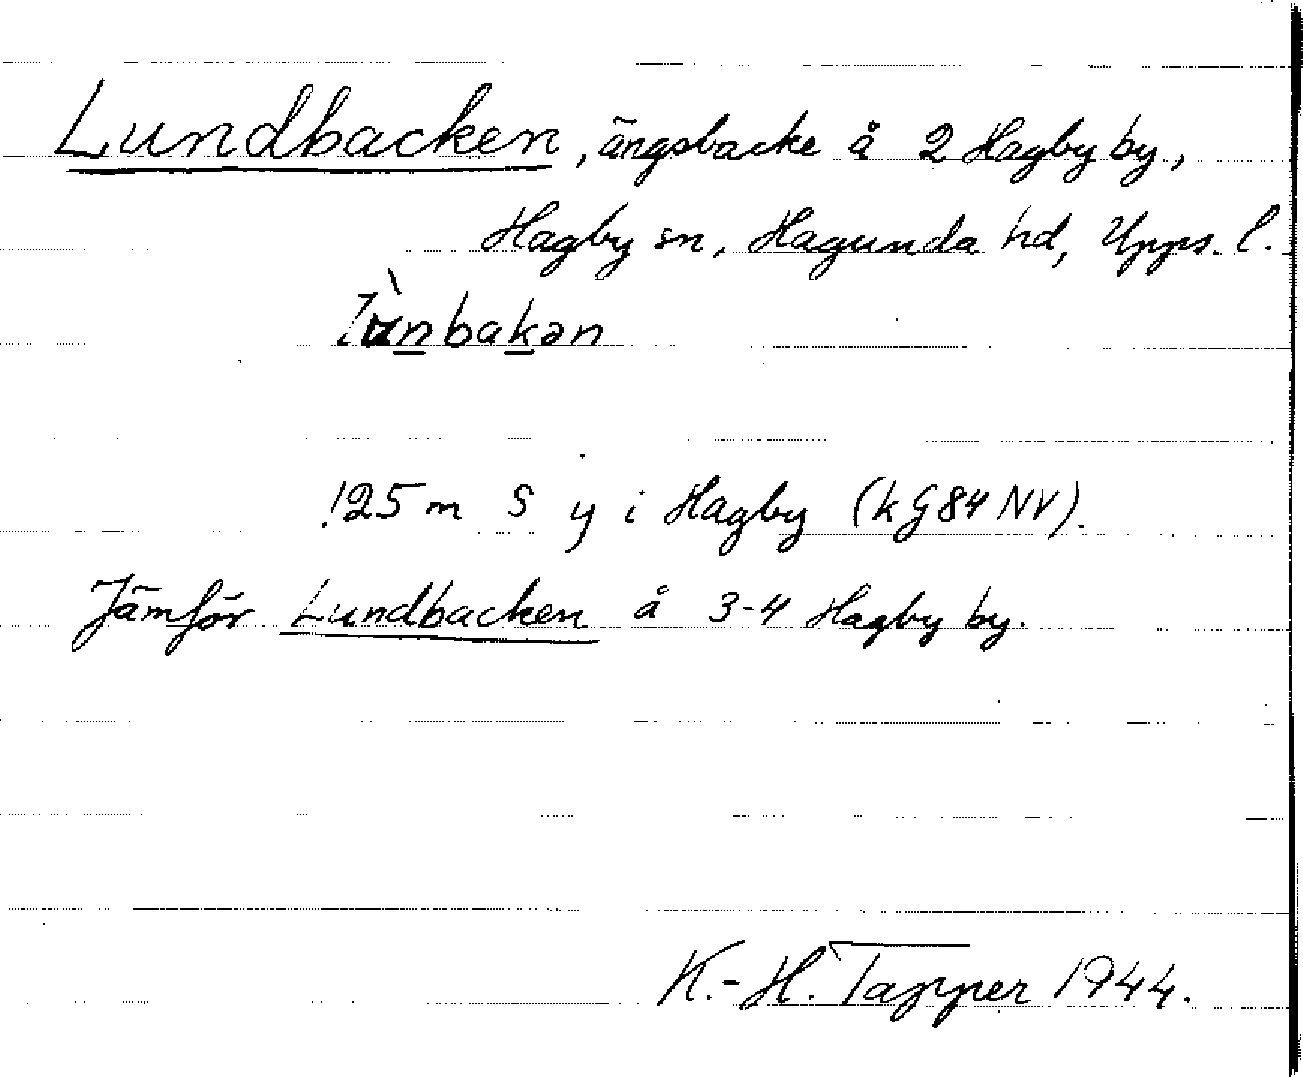 Lundbacken, ängsbacke å 2 Hagby by,
Hagby sn, Hagunda hd, Upps. l.
lùnbakən
125 m S y i Hagby (k G 84 NV).
Jämför Lundbacken å 3-4 Hagby by.
K.-H. Tapper 1944.